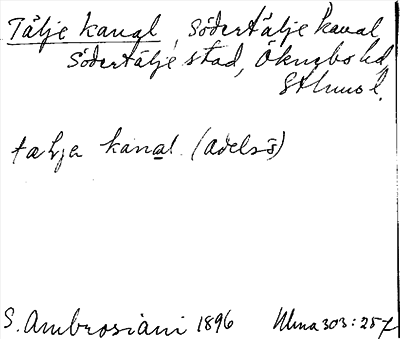 Tälje kanal, Södertälje kanal
Södertälje stad, Öknebo hd,
Sthms l.
talja kanal (Adelsö)
S. Ambrosiani 1896 Ulma 303:257